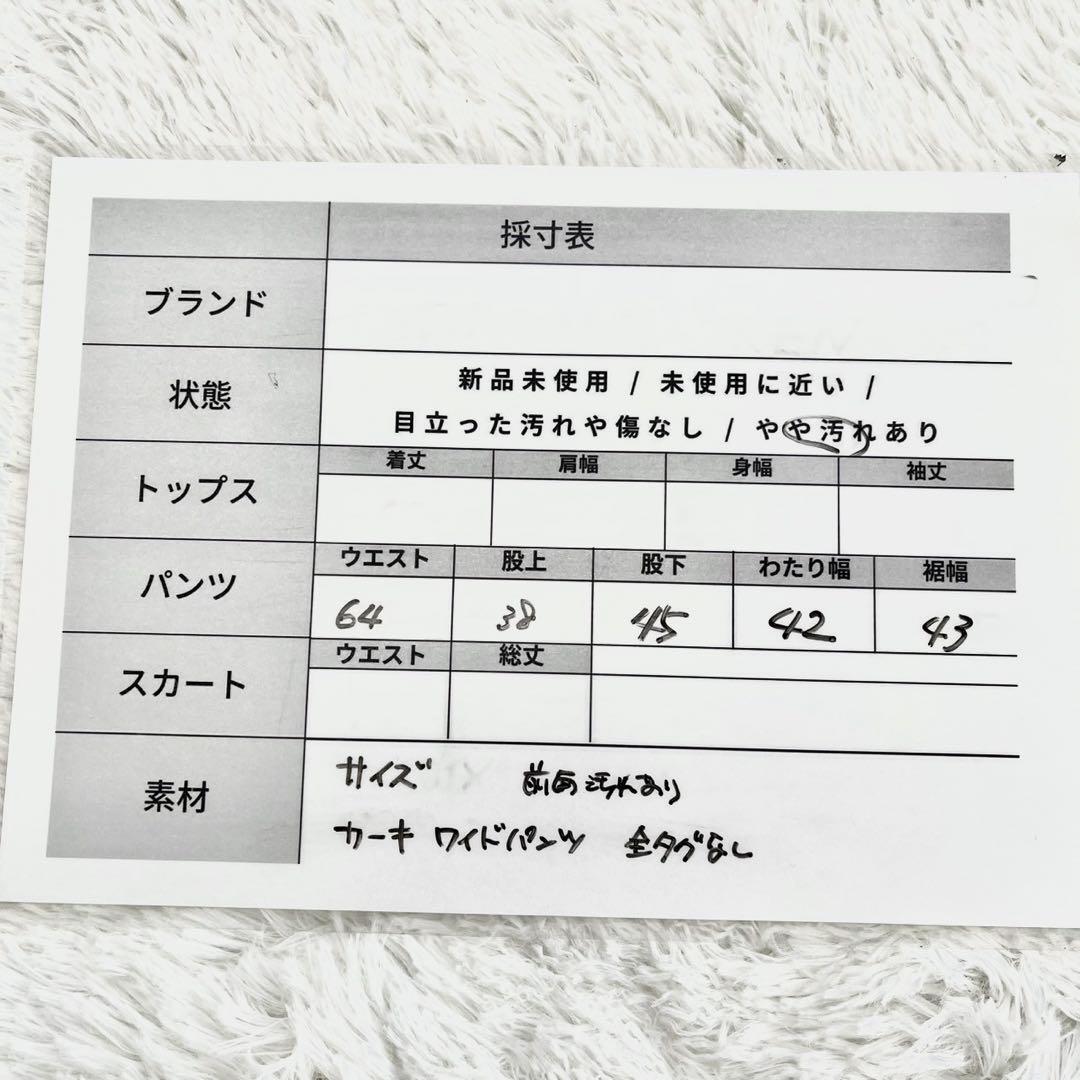 採寸表
ブランド
状態
新品未使用 / 未使用に近い /
目立った汚れや傷なし / やや汚れあり
トップス
着丈 肩幅 身幅 袖丈
パンツ
ウエスト 股上 股下 わたり幅 裾幅
64 38 45 42 43
スカート
ウエスト 総丈
素材
サイズ 前面汚れあり
カーキ ワイドパンツ 全タグなし